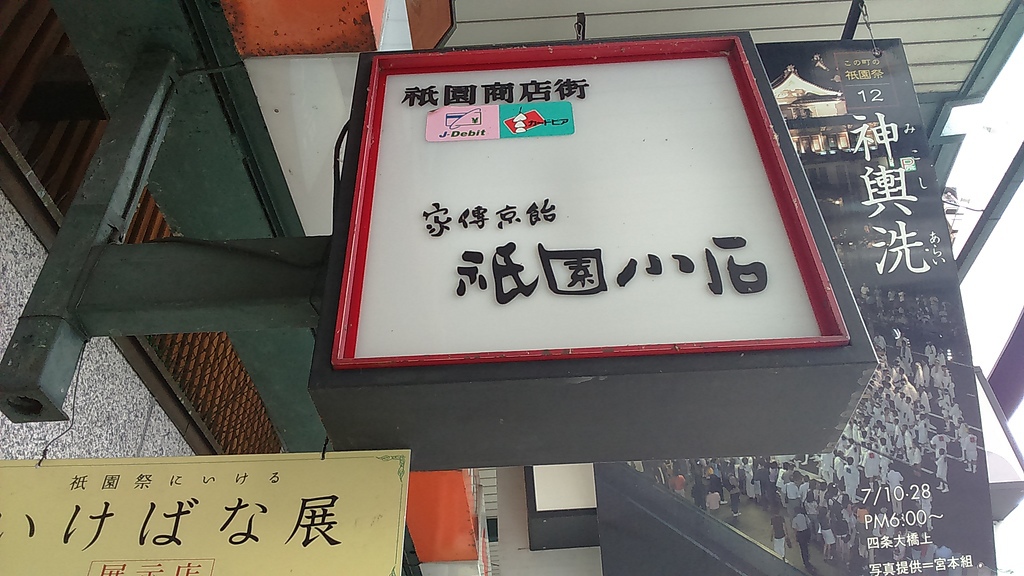 祇園商店街
J-Debit
カードピア
家傳京飴
祇園小石
この町の
祇園祭
12
神輿洗
みこし
あらい
7/10・28
PM6:00〜
四条大橋上
写真提供=宮本組
祇園祭にいける
いけばな展
展示店